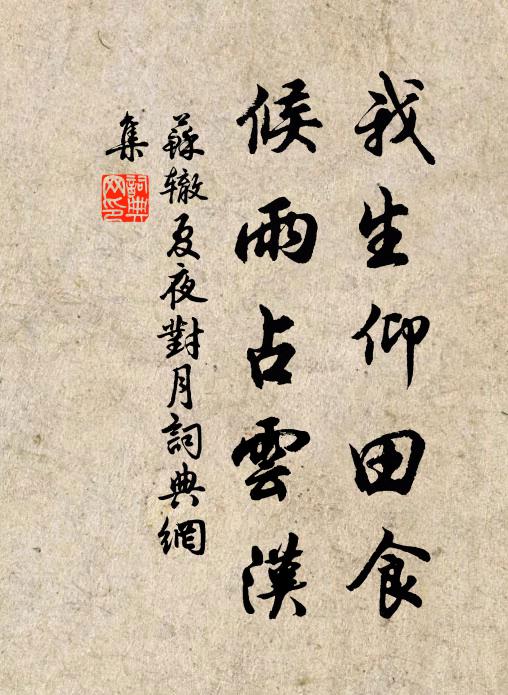 我生仰田食
候雨占雲漢
蘇辙夏夜對月詞典網
集
詞典
网印